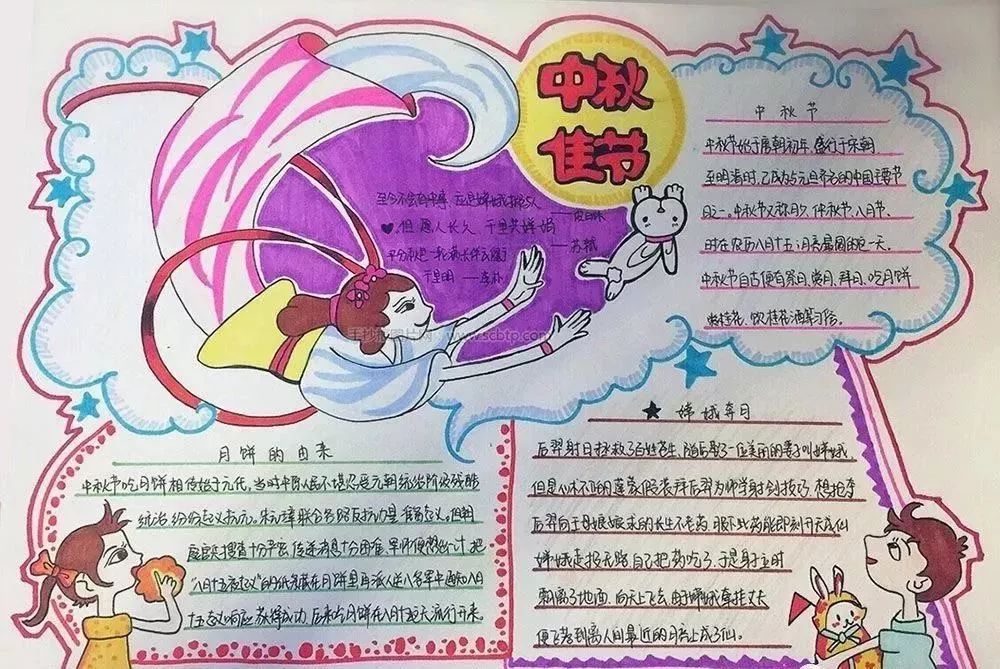 中秋
佳节
中秋节
中秋节始于唐朝初年,盛行于宋朝,
至明清时,已成为与元旦齐名的中国主要节
日之一。中秋节又称月夕、仲秋节、八月节。
时在农历八月十五;月亮最圆的这一天。
中秋节自古便有祭月、赏月、拜月、吃月饼
赏桂花、饮桂花酒等习俗。
至今不会天中事,应是嫦娥掷与人
——皮日休
但愿人长久,千里共婵娟
——苏轼
平分秋色一轮满,长伴云衢
千里明——李朴
手抄报图片网 www.scbtp.com
月饼的由来
中秋节吃月饼相传始于元代,当时中原人民不堪忍受元朝统治阶级残酷
统治纷纷起义抗元。朱元璋联合各路反抗力量准备起义。但朝
庭官兵搜查十分严密,传递消息十分困难,军师便想出一计,把
"八月十五夜起义"的纸条藏在月饼里再派人送入各军中通知八月
十五起义响应,获得成功,后来吃月饼在八月十五大流行开来。
嫦娥奔月
后羿射日拯救了百姓苍生,随后娶了一位美丽的妻子叫嫦娥,
但是心术不正的蓬蒙假装拜后羿为师学射剑技巧,想抢夺
后羿向王母娘娘求的长生不老药,服下此药能即刻升天成仙
嫦娥走投无路,自己把药吃了,于是身立时
飘离了地面,向天上飞去。由于嫦娥牵挂丈夫
便飞落到离人间最近的月亮上成了仙。